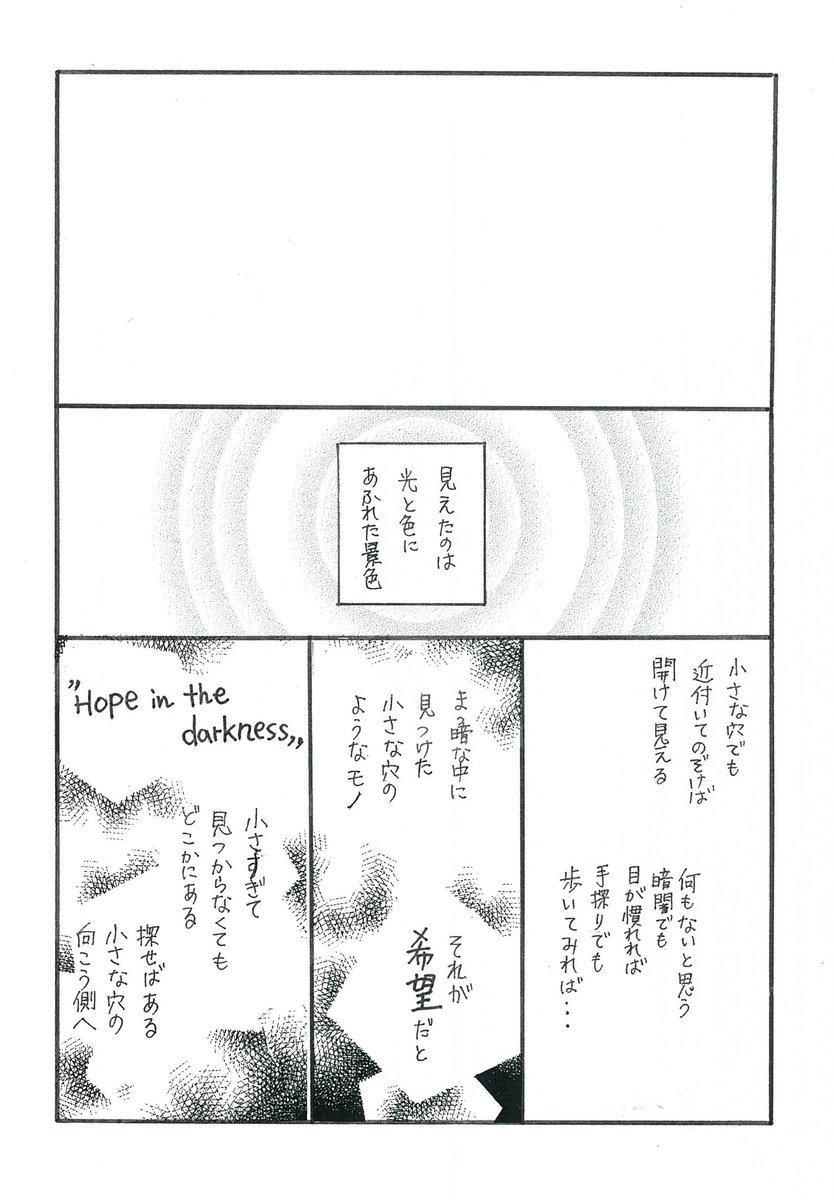 見えたのは
光と色に
あふれた景色
小さな穴でも
近付いてのぞけば
開けて見える
何もないと思う
暗闇でも
目が慣れれば
手探りでも
歩いてみれば・・・
まっ暗な中に
見つけた
小さな穴の
ようなモノ
それが
希望だと
"Hope in the
darkness„
小さすぎて
見つからなくても
どこかにある
探せばある
小さな穴の
向こう側へ